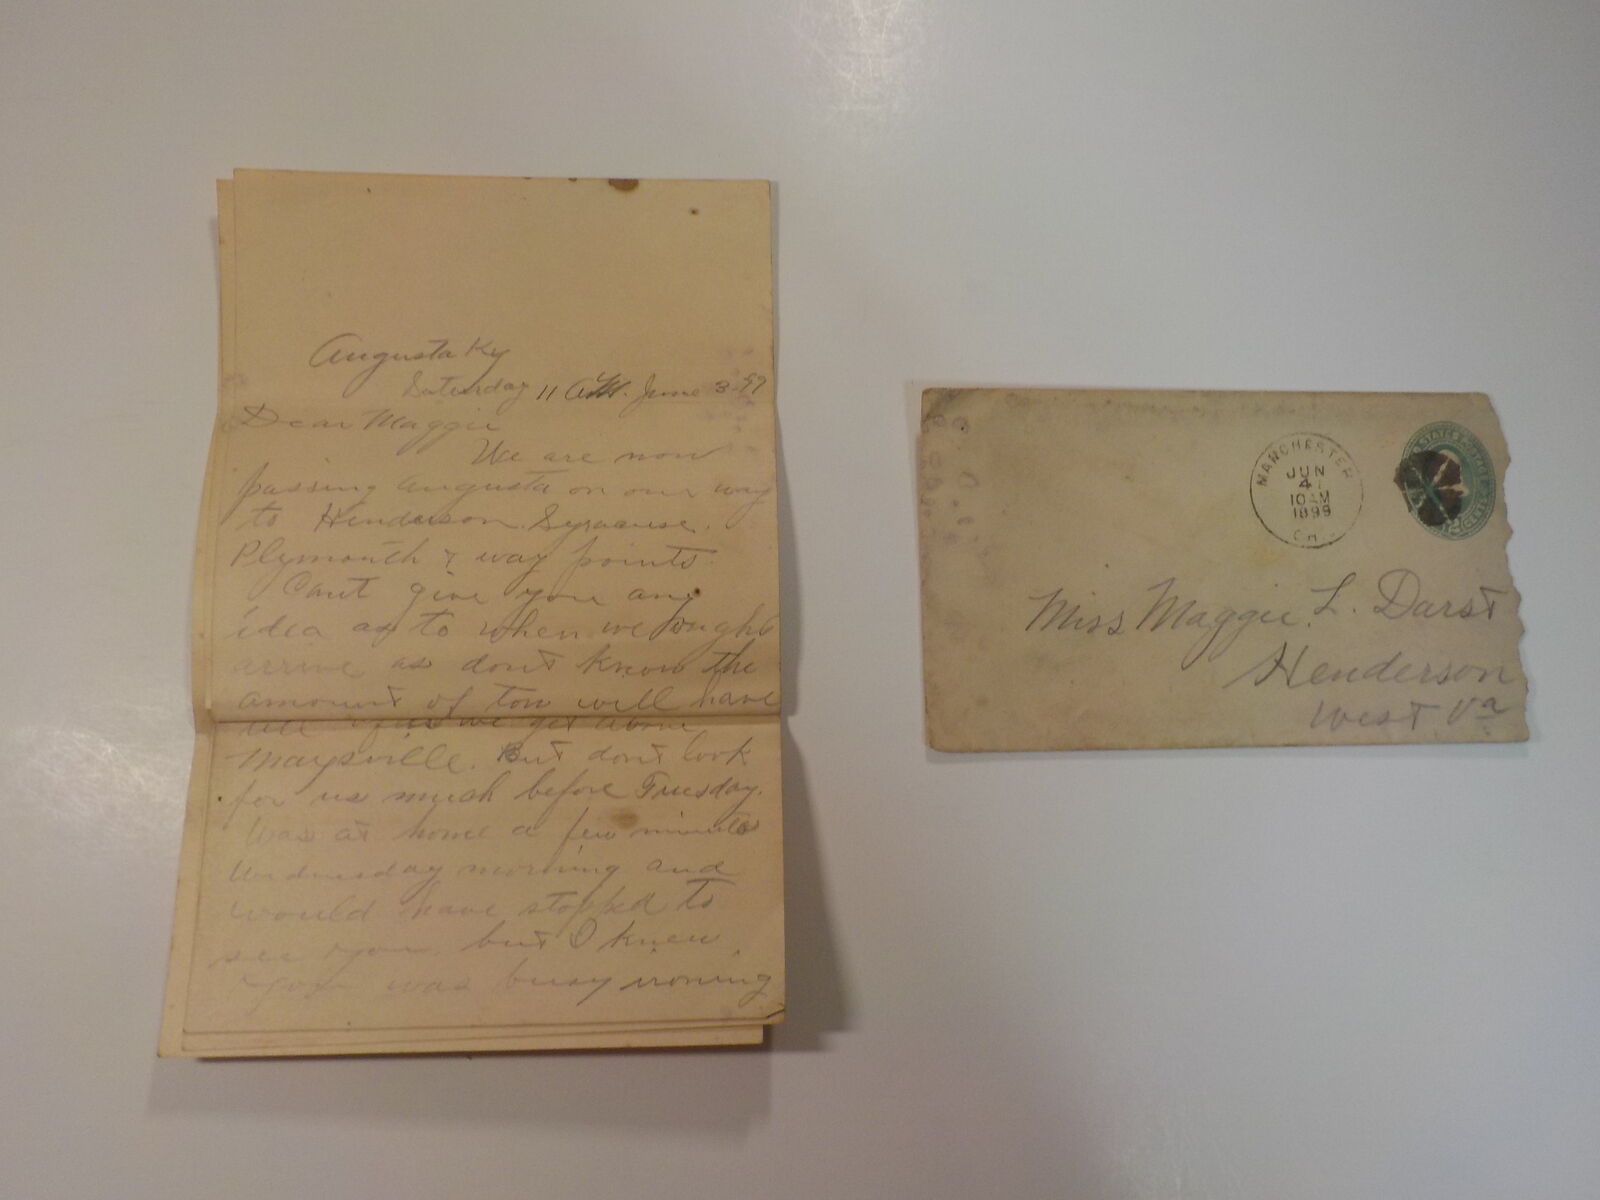 Augusta Ky
Saturday 11 AM. June 3-99
Dear Maggie
We are now
passing Augusta on our way
to Henderson. Syracuse.
Plymouth & way points.
Cant give you any
idea as to when we might
arrive as dont know the
amount of tow will have
we get above
Maysville. But dont look
for us much before Tuesday.
Was at home a few minutes
Wednesday morning and
would have stopped to
see you but I knew
you was busy ironing
MANCHESTER
JUN
4
10 AM
1899
Miss Maggie L. Darst
Henderson
West Va